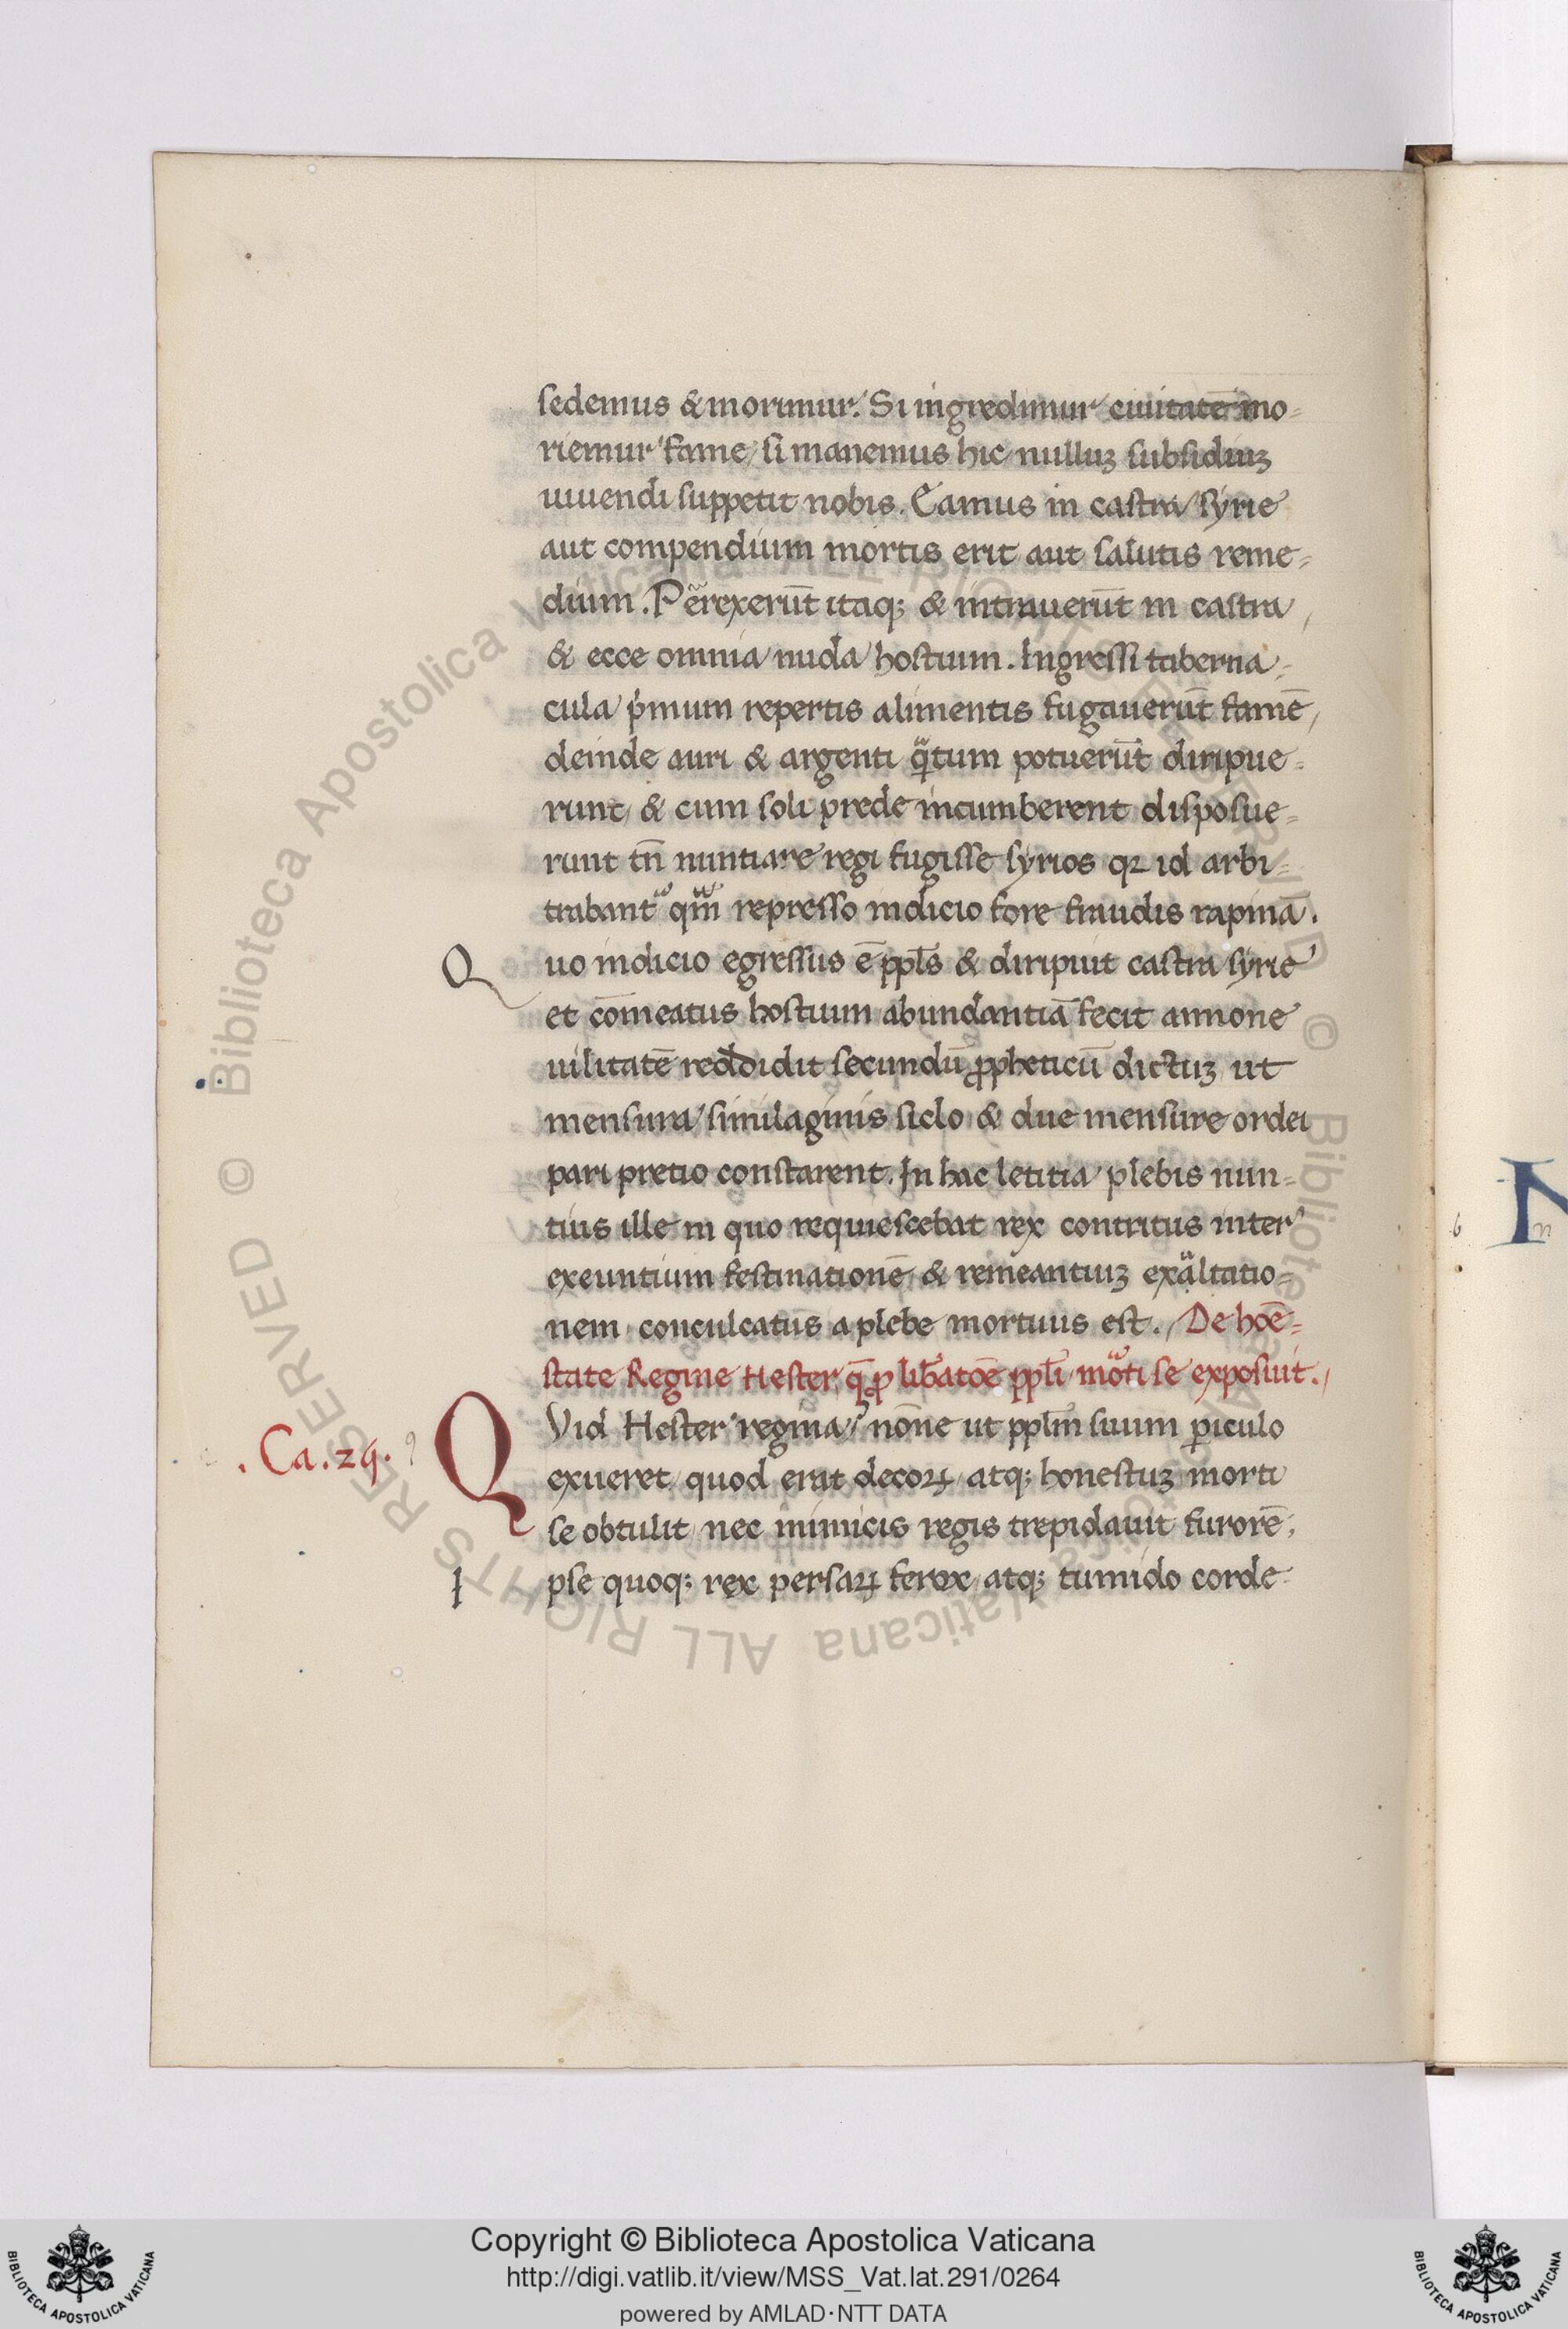 sedemus & morimur. Si ingredimur ciuitatē mo=
riemur fame, si manemus hic nulluꝫ subsidiuꝫ
uiuendi suppetit nobis. Eamus in castra syrie
aut compendium mortis erit aut salutis reme=
dium. Perrexerūt itaqꝫ & intrauerūt in castra,
& ecce omnia nuda hostium. Ingressi taberna=
cula pͥmum repertis alimentis fugauerūt famē,
deinde auri & argenti qͣ̄tum potuerūt diripue=
runt, & cum soli prede incumberent disposue=
runt tn̄ nuntiare regi fugisse syrios qꝛ id arbi=
trabant᷑ qm̄ represso indicio fore fraudis rapinā.
Quo indicio egressus ē ppl̄s & diripuit castra syrie
et cōmeatus hostium abundantiā fecit annone
uilitatē reddidit secundū ꝓpheticū dictuꝫ ut
mensura similaginis siclo & due mensure ordei
pari pretio constarent. In hac letitia plebis nun=
tius ille in quo requiescebat rex contritus inter
exeuntium festinationē & remeantiuꝫ exaltatio=
nem conculcatus a plebe mortuus est. De hoē=
state Regine Hester q̄ ꝓ lib̄atōe ppl̄i mōti se exposuit.
.Ca. 24.
QVid Hester regina, nōne ut ppl̄m suum ꝑiculo
exueret, quod erat decoꝝ, atqꝫ honestuꝫ morti
se obtulit, nec inimicis regis trepidauit furorē,
Ipse quoqꝫ rex persaꝝ ferox, atqꝫ tumido corde
Copyright © Biblioteca Apostolica Vaticana
http://digi.vatlib.it/view/MSS_Vat.lat.291/0264
powered by AMLAD·NTT DATA
BIBLIOTECA APOSTOLICA VATICANA
BIBLIOTECA APOSTOLICA VATICANA
© Biblioteca Apostolica Vaticana ALL RIGHTS RESERVED © Biblioteca Apostolica Vaticana ALL RIGHTS RESERVED